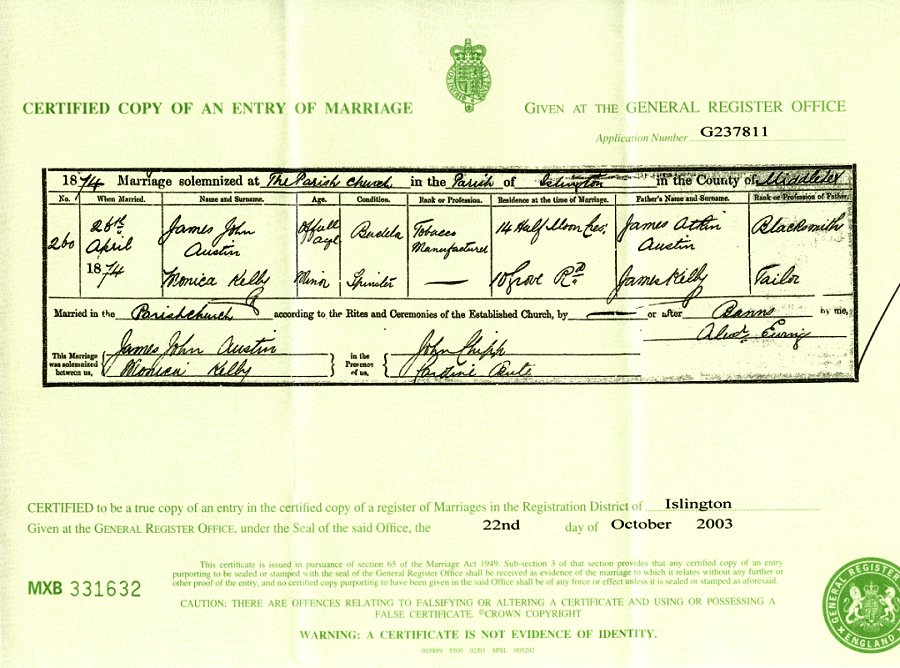 CERTIFIED COPY OF AN ENTRY OF MARRIAGE
GIVEN AT THE GENERAL REGISTER OFFICE
Application Number G237811
1874 Marriage solemnized at The Parish Church in the Parish of Islington in the County of Middlesex
No. When Married. Name and Surname. Age. Condition. Rank or Profession. Residence at the time of Marriage. Father's Name and Surname. Rank or Profession of Father.
260 26th April 1874 James John Austin Of full age Tobacco Manufacturer 14 Half Moon Cres. James Atkin Austin Blacksmith
Monica Kelby Minor Spinster — 10 Grove Rd James Kelby Tailor
Married in the Parish church according to the Rites and Ceremonies of the Established Church, by — or after Banns by me,
This Marriage was solemnized between us, James John Austin Monica Kelby in the Presence of us, John
CERTIFIED to be a true copy of an entry in the certified copy of a register of Marriages in the Registration District of Islington
Given at the GENERAL REGISTER OFFICE, under the Seal of the said Office, the 22nd day of October 2003
This certificate is issued in pursuance of section 65 of the Marriage Act 1949. Sub-section 3 of that section provides that any certified copy of an entry
purporting to be sealed or stamped with the seal of the General Register Office shall be received as evidence of the marriage to which it relates without any further or
other proof of the entry, and no certified copy purporting to have been given in the said Office shall be of any force or effect unless it is sealed or stamped as aforesaid.
MXB 331632
CAUTION: THERE ARE OFFENCES RELATING TO FALSIFYING OR ALTERING A CERTIFICATE AND USING OR POSSESSING A
FALSE CERTIFICATE. ©CROWN COPYRIGHT
WARNING: A CERTIFICATE IS NOT EVIDENCE OF IDENTITY.
GENERAL REGISTER
ENGLAND